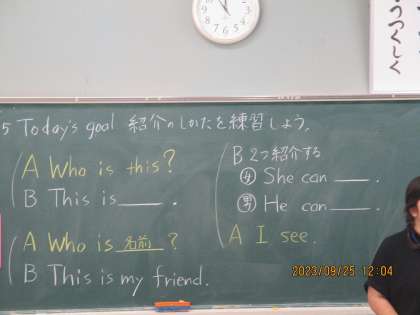 5 Today's goal 紹介のしかたを練習しよう。
A Who is this?
B This is ____.
A Who is 名前 ?
B This is my friend.
B 2つ紹介する
女 She can ____.
男 He can ____.
A I see.
うつくしく
2023/09/25 12:04